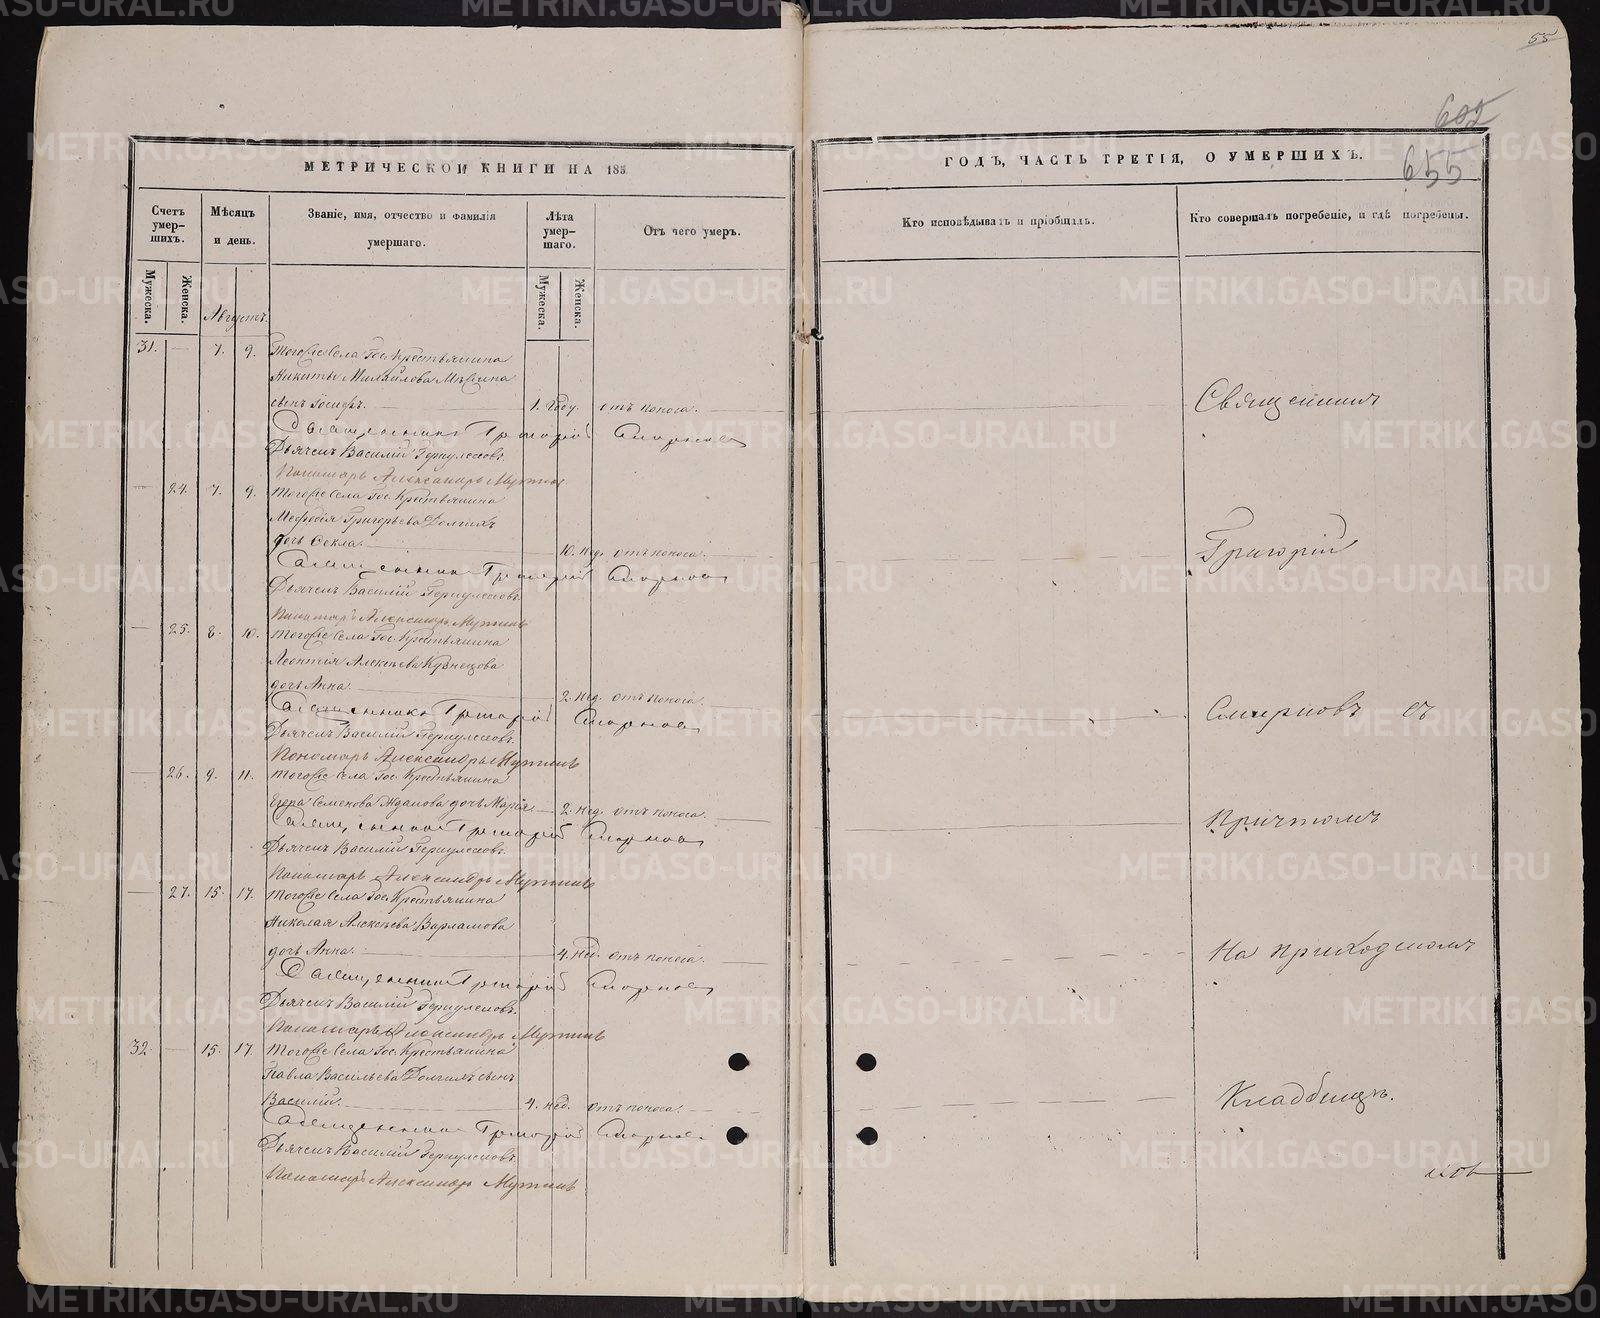 55
602
655
МЕТРИЧЕСКОЙ КНИГИ НА 185
ГОДЪ, ЧАСТЬ ТРЕТІЯ, О УМЕРШИХЪ.
Счетъ умер-
шихъ.
Мужеска.
Женска.
Мѣсяцъ
и день.
Званіе, имя, отчество и фамилія
умершаго.
Лѣта
умер-
шаго.
Мужеска.
Женска.
Отъ чего умеръ.
Кто исповѣдывалъ и пріобщалъ.
Кто совершалъ погребеніе, и гдѣ погребены.
Августъ.
31. — 7. 9. Тогоже Села Гос. Крестьянина
Никиты Михайлова
сынъ Іосифъ. 1. году. отъ поноса.
Священникъ Григорій Смирновъ
Дьячекъ Василій Геркулесовъ.
Пономарь Александръ
— 24. 7. 9. Тогоже Села Гос. Крестьянина
Мефодія Григорьева Долгихъ
дочь Фекла. 10. нед. отъ поноса.
Священникъ Григорій Смирновъ
Дьячекъ Василій Геркулесовъ.
Пономарь Александръ
— 25. 8. 10. Тогоже Села Гос. Крестьянина
Леонтія Алексѣева Кузнецова
дочь Анна. 2. нед. отъ поноса.
Священникъ Григорій Смирновъ
Дьячекъ Василій Геркулесовъ.
Пономарь Александръ
— 26. 9. 11. Тогоже Села Гос. Крестьянина
Егора Семенова Жданова дочь Марія. 2. нед. отъ поноса.
Священникъ Григорій Смирновъ
Дьячекъ Василій Геркулесовъ.
Пономарь Александръ
— 27. 15. 17. Тогоже Села Гос. Крестьянина
Николая Алексѣева Варламова
дочь Анна. 4. нед. отъ поноса.
Священникъ Григорій Смирновъ
Дьячекъ Василій Геркулесовъ.
Пономарь Александръ
32. — 15. 17. Тогоже Села Гос. Крестьянина
Павла Васильева Долгихъ сынъ
Василій. 4. нед. отъ поноса.
Священникъ Григорій Смирновъ
Дьячекъ Василій Геркулесовъ.
Пономарь Александръ
Священникъ
Григорій
Смирновъ съ
Причтомъ
На приходскомъ
Кладбищѣ.
METRIKI.GASO-URAL.RU